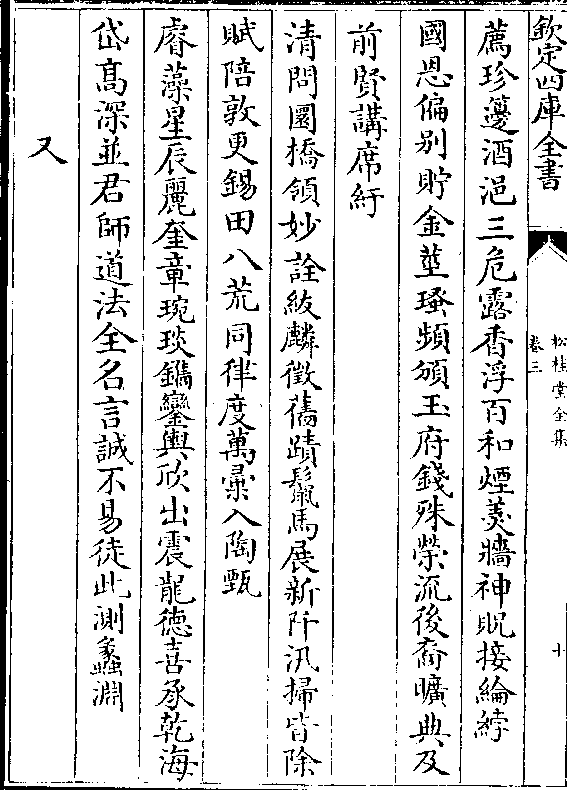 欽定四庫全書
松桂堂全集
卷三
十
薦珍籩酒浥三危露香浮百和煙羹牆神貺接綸綍
國恩偏別貯金莖璲頻頒玉府錢殊榮流後裔曠典及
前賢講席紆
清問圜橋領妙詮紱麟徵舊蹟鬣馬展新阡汛掃皆除
賦陪敦更錫田八荒同律度萬彚入陶甄
睿藻星辰麗奎章琬琰鐫鑾輿欣出震龍德喜承乾海
岱髙深並君師道法全名言誠不易徒此測蠡淵
又